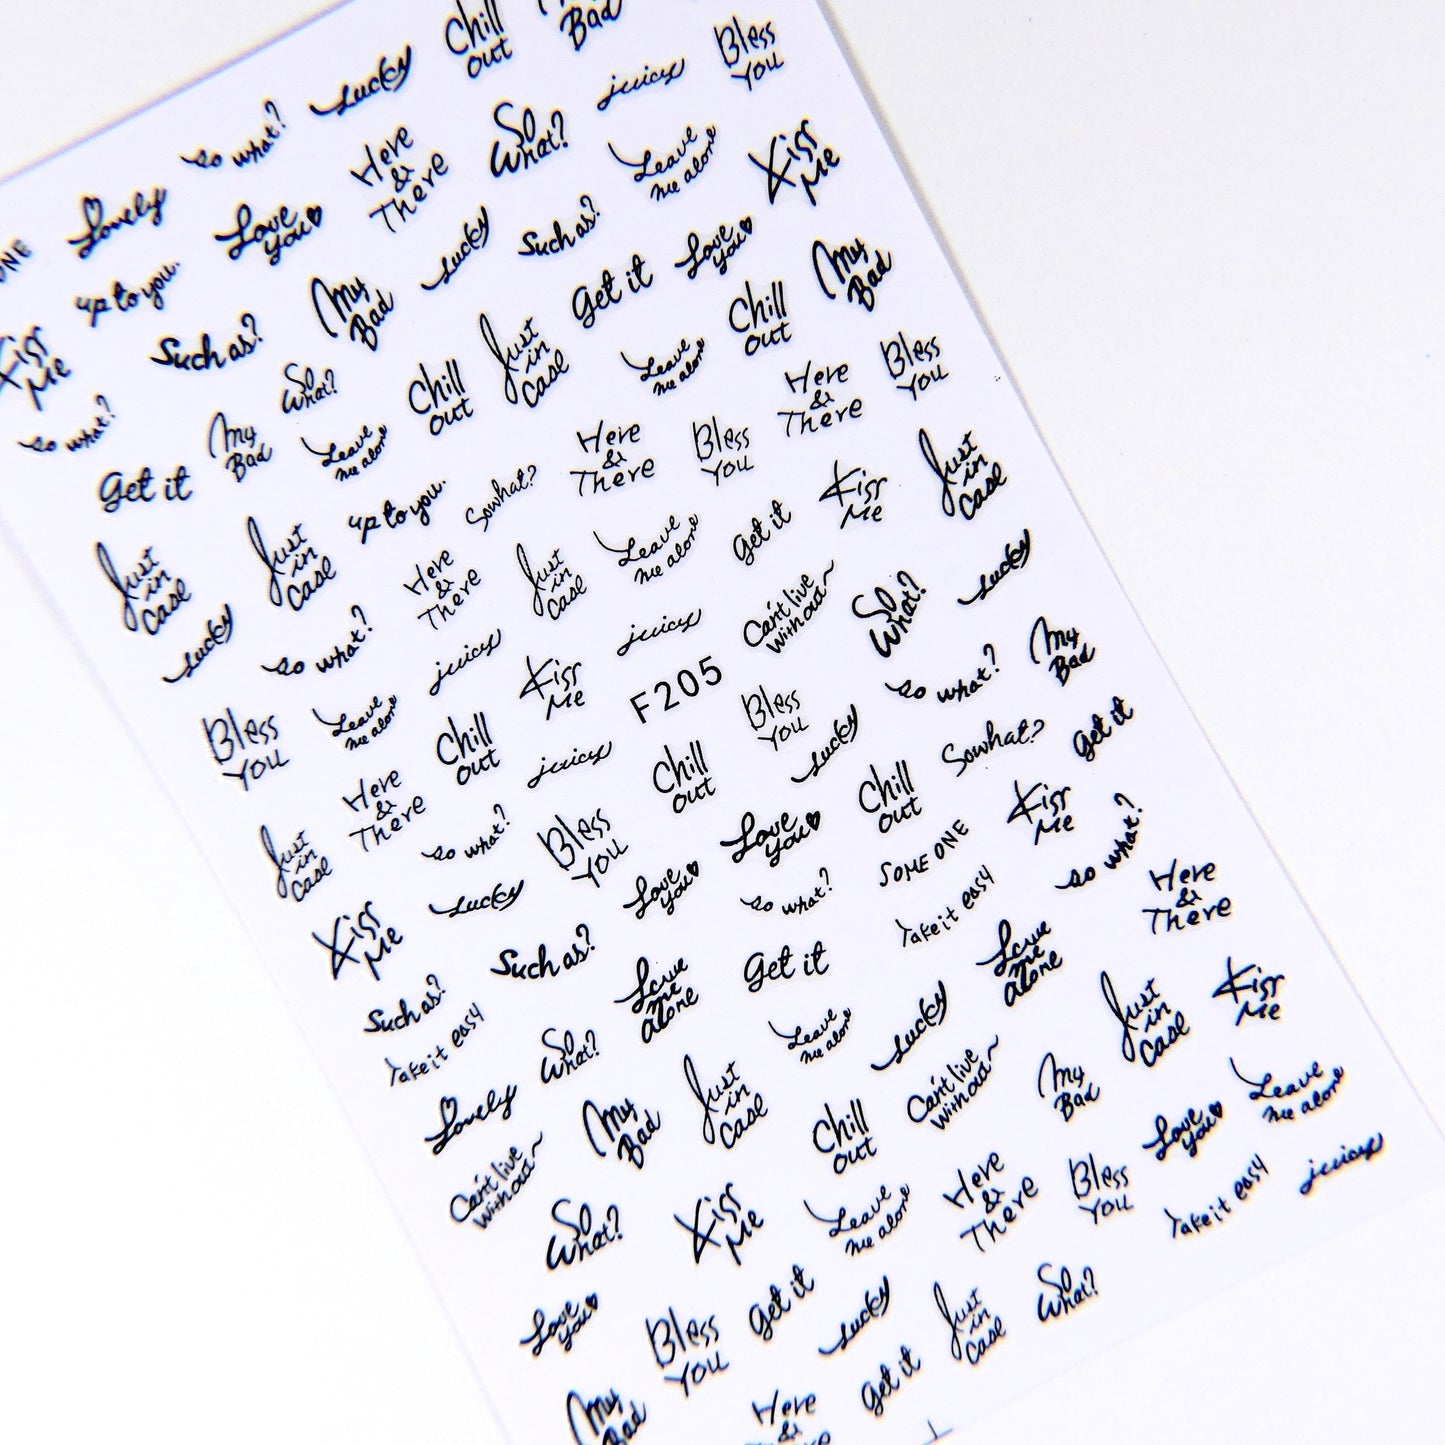 Chill
out
My
Bad
Bless
You
Lucky
juicy
So what?
Here
&
There
So
What?
Leave
me alone
Kiss
Me
Lovely
Love
you
Lucky
Such as?
Love
you
My
Bad
ONE
up to you.
My
Bad
Get it
Chill
out
Bless
You
Kiss
Me
Such as?
So
What?
Just
in
Case
Leave
me alone
Here
&
There
So what?
My
Bad
Leave
me alone
Chill
out
Here
&
There
Bless
You
Just
in
Case
Get it
up to you.
So what?
Get it
Kiss
Me
Lucky
Just
in
Case
Just
in
Case
Here
&
There
Just
in
Case
Leave
me alone
Can't live
Without~
So
What?
My
Bad
Lucky
So what?
juicy
Kiss
Me
juicy
F205
Bless
You
So what?
Get it
Bless
You
Leave
me alone
Chill
out
juicy
Chill
out
Lucky
So what?
Kiss
Me
Here
&
There
So what?
Bless
You
Love
you
Chill
out
SOME ONE
So what?
Here
&
There
Just
in
Case
Lucky
Love
you
So what?
Take it easy
Love
me
alone
Just
in
Case
Kiss
Me
Kiss
Me
Such as?
Love
me
alone
Get it
Lucky
Can't live
Without~
My
Bad
Leave
me alone
Such as?
Take it easy
So
What?
Just
in
Case
Leave
me alone
Chill
out
Love
you
juicy
Lovely
My
Bad
Here
&
There
Bless
You
Take it easy
Can't live
Without~
So
What?
Kiss
Me
Leave
me alone
Love
you
Bless
You
Get it
Lucky
Just
in
Case
So
What?
My
Bad
Here
&
Get it